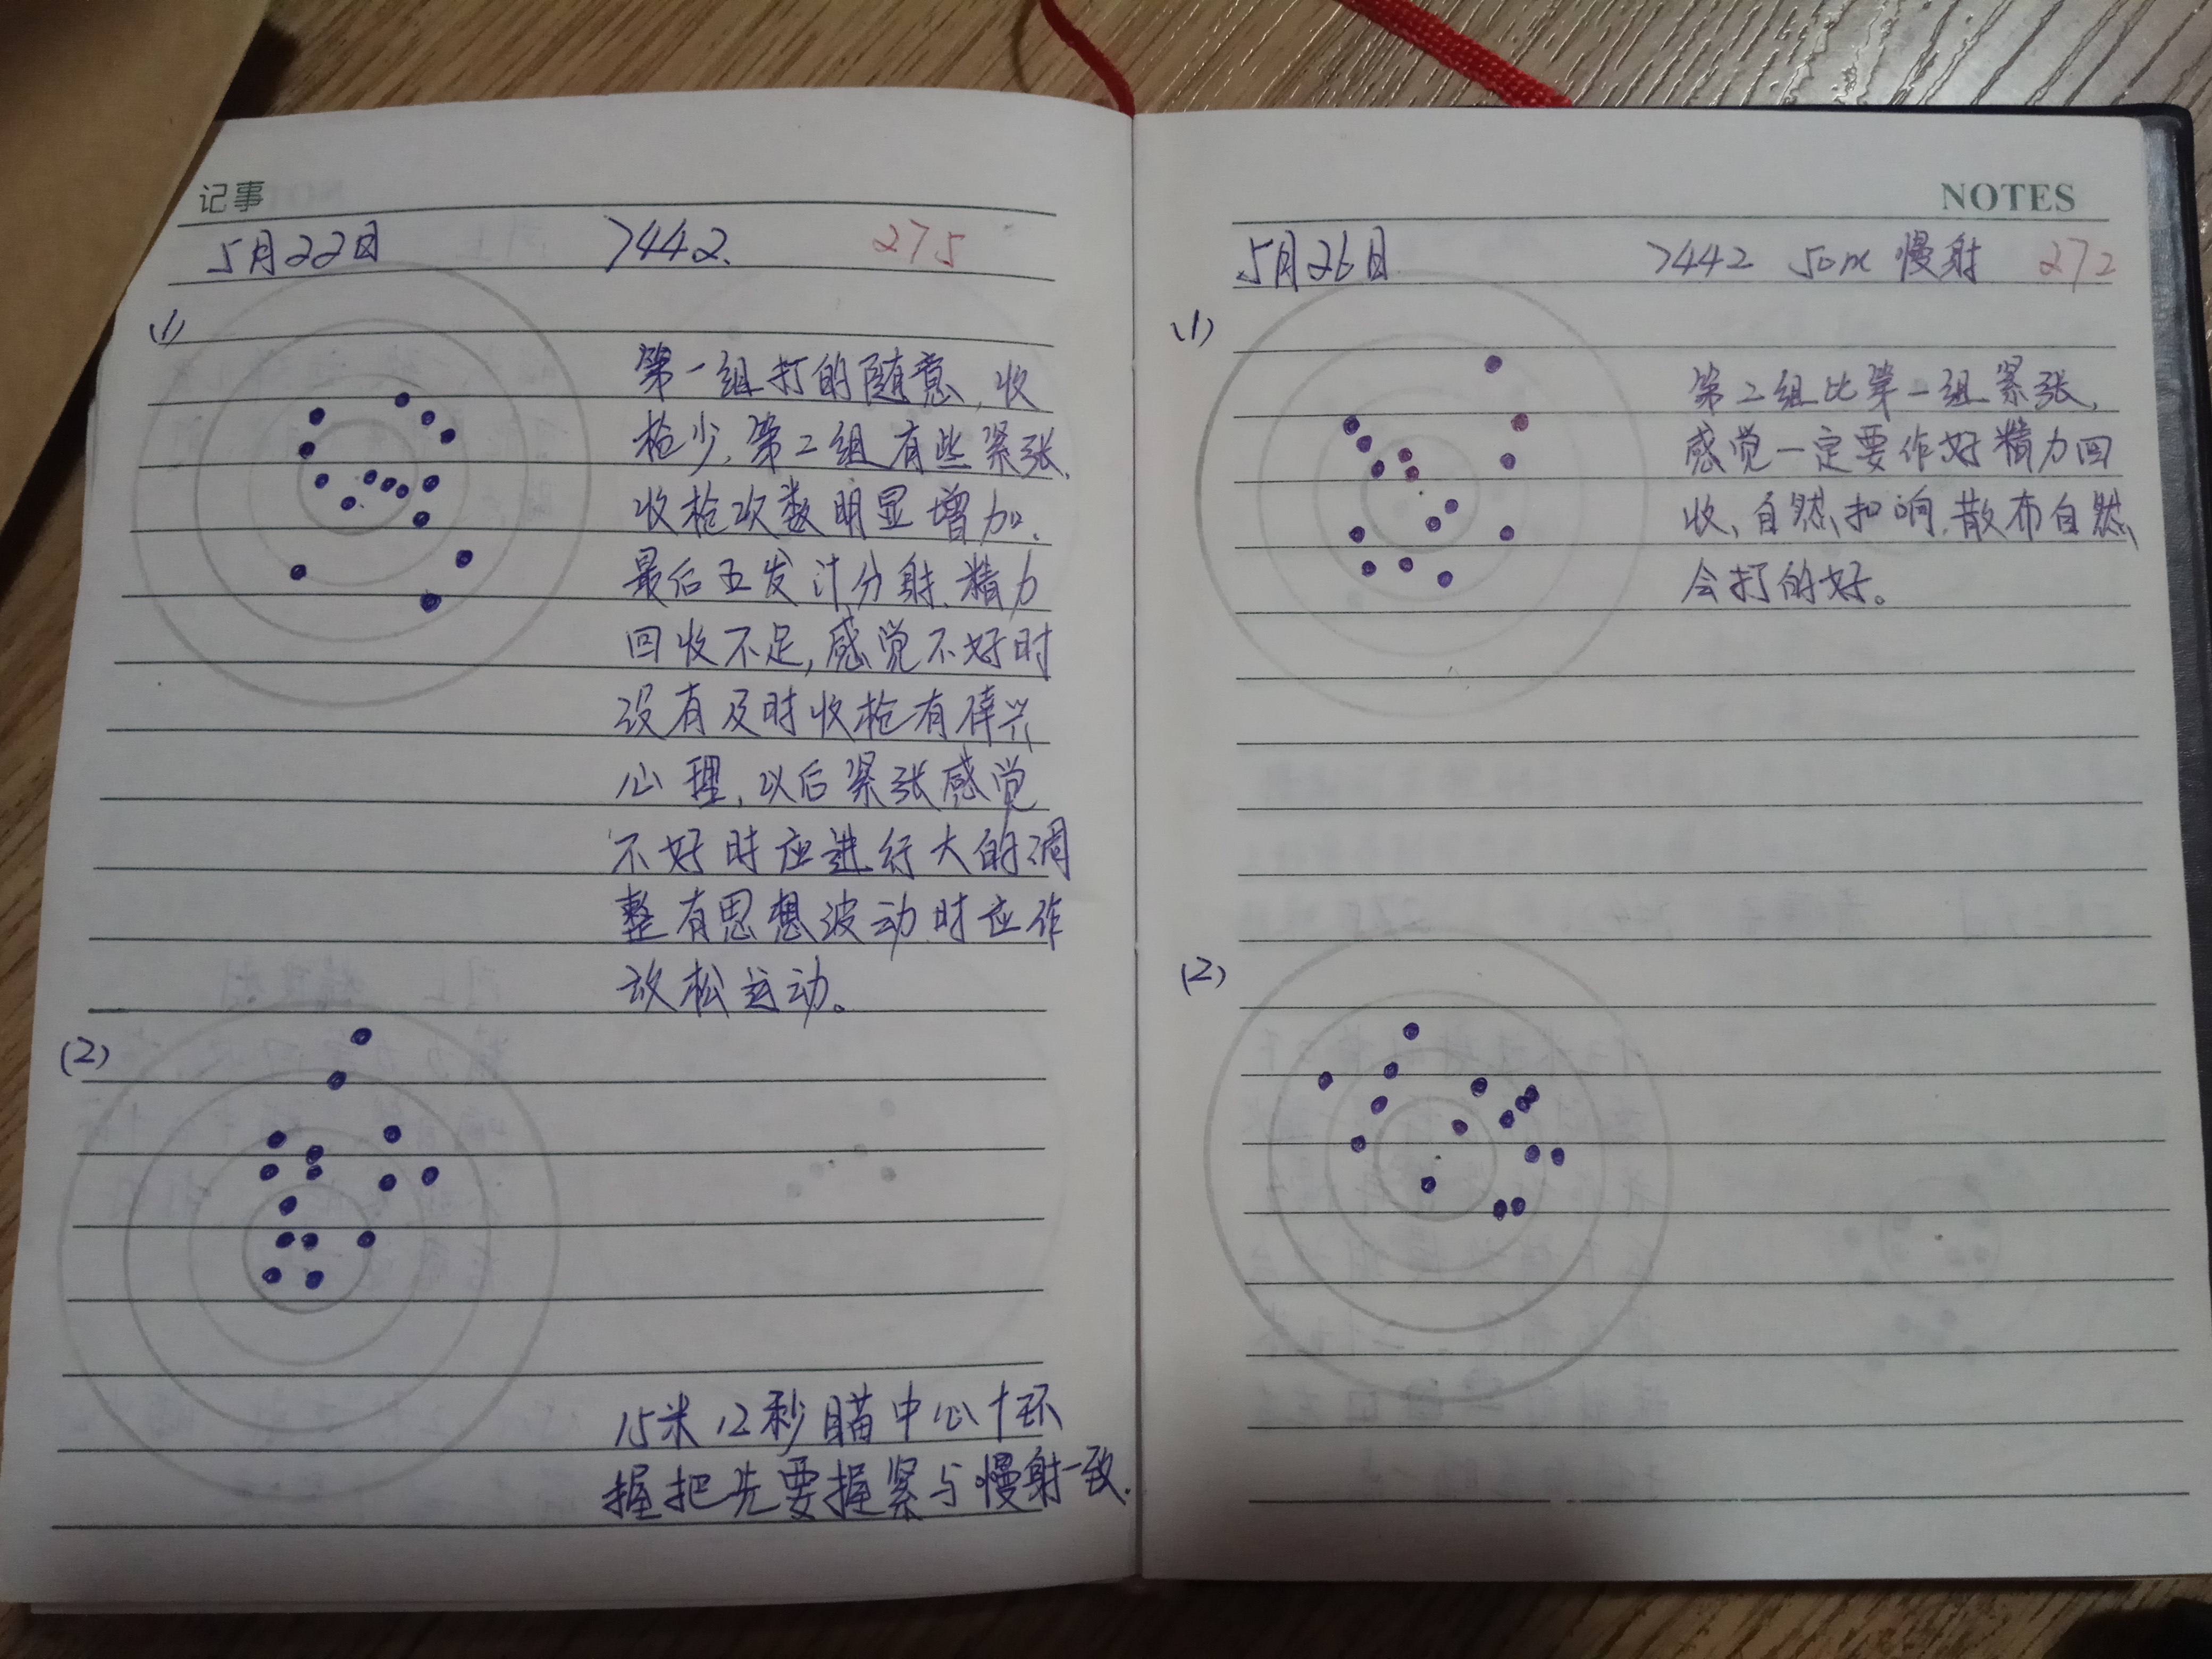 记事
5月22日 7442. 275
(1)
第一组打的随意，收
枪少，第2组有些紧张，
收枪次数明显增加，
最后五发计分射，精力
回收不足，感觉不好时
没有及时收枪有侥兴
心理，以后紧张感觉
不好时应进行大的调
整有思想波动时应作
放松运动。
(2)
15米12秒瞄中心十环
握把先要握紧与慢射一致.
NOTES
5月26日 7442 50m 慢射 272
(1)
第2组比第一组紧张，
感觉一定要作好精力回
收、自然扣响，散布自然
会打的好。
(2)